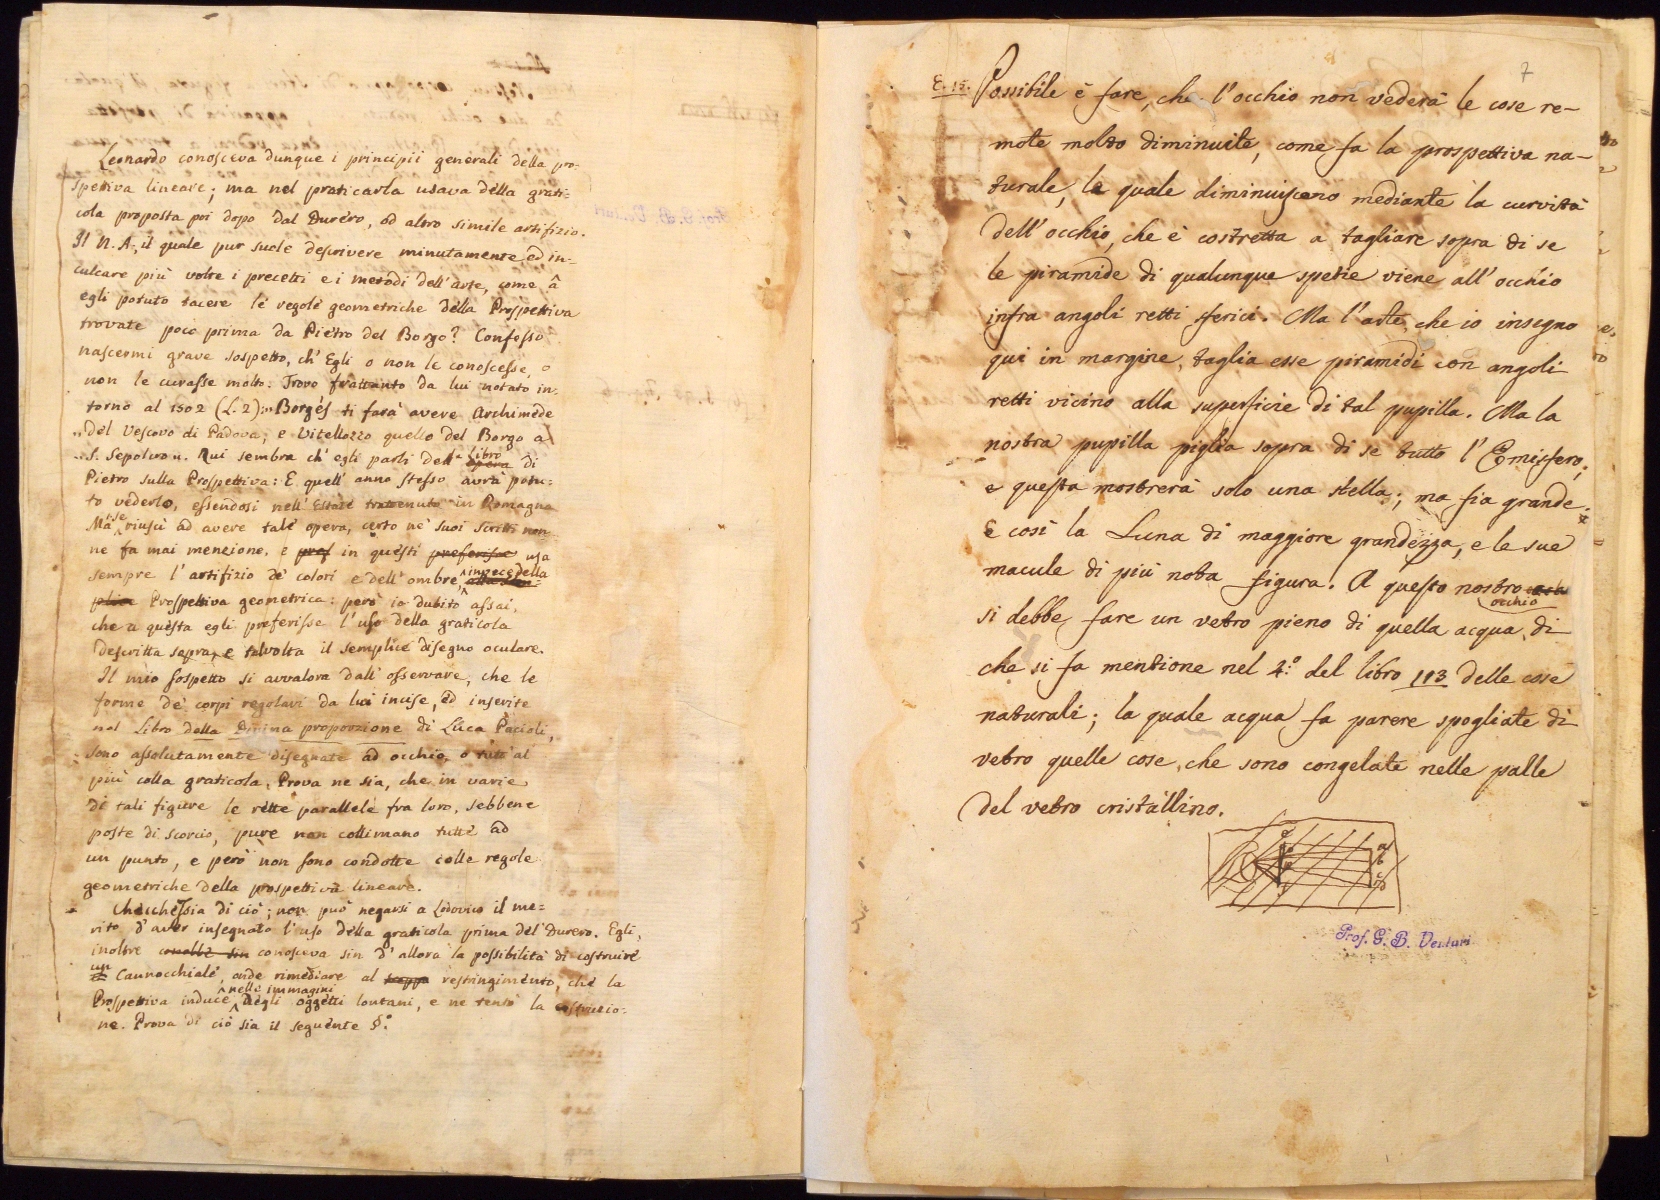 Leonardo conosceva dunque i principii generali della pro-
spettiva lineare; ma nel praticarla usava della grati-
cola proposta poi dopo dal Durero, od altro simile artifizio.
Il N. A., il quale pur suole descrivere minutamente ed in-
culcare più volte i precetti e i metodi dell'arte, come â
egli potuto tacere le regole geometriche della Prospettiva
trovate poco prima da Pietro del Borgo? Confesso
nascermi grave sospetto, ch'Egli o non le conoscesse, o
non le curasse molto. Trovo frattanto da lui notato in-
torno al 1502 (L. 2): "Borgés ti farà avere Archimede
"del Vescovo di Padova, e Vitellozzo quello del Borgo a
"S. Sepolcro". Qui sembra ch'egli parli dell' opera di
libro
Pietro sulla Prospettiva: E quell'anno stesso avrà potu-
to vederlo, essendosi nell'Estate trattenuto in Romagna
Ma se riuscì ad avere tale opera, certo ne' suoi scritti non
ne fa mai menzione. e pref in questi preferisce usa
sempre l'artifizio de' colori e dell'ombre, invece della
Prospettiva geometrica: però io dubito assai,
che a questa egli preferisse l'uso della graticola
descritta sopra, e talvolta il semplice disegno oculare.
Il mio sospetto si avvalora dall'osservare, che le
forme de' corpi regolari da lui incise, ed inserite
nel Libro della Divina proporzione di Luca Pacioli,
sono assolutamente disegnate ad occhio, o tutt'al
più colla graticola. Prova ne sia, che in varie
di tali figure le rette parallele fra loro, sebbene
poste di scorcio, pure non collimano tutte ad
un punto, e però non sono condotte colle regole
geometriche della prospettiva lineare.
Checchessia di ciò; non può negarsi a Lodovico il me-
rito d'aver insegnato l'uso della graticola prima del Durero. Egli,
inoltre conobbe sin conosceva sin d'allora la possibilità di costruire
un Cannocchiale, onde rimediare al restringimento, che la
nelle immagini
Prospettiva induce degli oggetti lontani, e ne tentò la costruzio-
ne. Prova di ciò sia il seguente §.°
7
E. 15. Possibile è fare, che l'occhio non vederà le cose re-
mote molto diminuite, come fa la prospettiva na-
turale, le quale diminuiscano mediante la curvità
dell'occhio, che è costretta a tagliare sopra di se
le piramide di qualunque spetie viene all'occhio
infra angoli retti sferici. Ma l'arte, che io insegno
qui in margine, taglia esse piramidi con angoli
retti vicino alla superficie di tal pupilla. Ma la
nostra pupilla piglia sopra di se tutto l'Emisfero,
e questa mostrerà solo una stella; ma fia grande.
E così la Luna di maggiore grandezza, e le sue
macule di più nota figura. A questo nostro
occhio
si debbe fare un vetro pieno di quella acqua, di
che si fa mentione nel 4.° del libro 113 delle cose
naturali; la quale acqua fa parere spogliate di
vetro quelle cose, che sono congelate nelle palle
del vetro cristallino.
a
b
c
d
Prof. G. B. Venturi